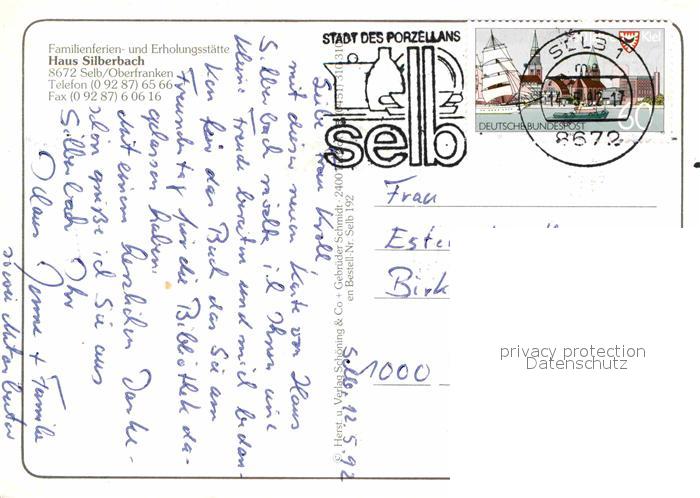 Familienferien- und Erholungsstätte
Haus Silberbach
8672 Selb/Oberfranken
Telefon (0 92 87) 65 66
Fax (0 92 87) 6 06 16
STADT DES PORZELLANS
selb
SELB 1
8672
Kiel
DEUTSCHE BUNDESPOST
60
Liebe Frau Kroll
mit dieser neuen Karte von Haus
Silberbach möchte ich Ihnen eine
kleine Freude bereiten und mich bedan-
ken für das Buch das Sie am
Freundstag für die Bibliothek da-
gelassen haben.
Mit einem herzlichen Danke-
schön grüße ich Sie aus
Silberbach Ihr
Klaus + Familie
sowie Mitarbeiter
Selb 12.5.92
© Herst. u. Verlag Schöning & Co + Gebrüder Schmidt · 2400
en Bestell-Nr. Selb 192
Frau
Birk
1000
privacy protection
Datenschutz